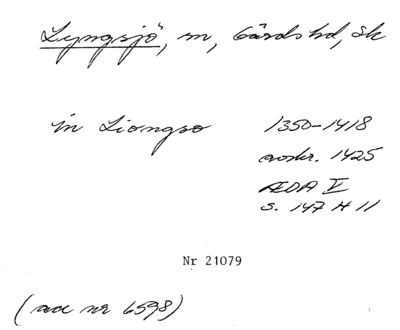 Lyngsjö, sn, Gärds hd, Sk
in Liongso 1350-1418
avskr. 1425
ÆDA V
s. 147 H 11
Nr 21079
(av nr 6598)